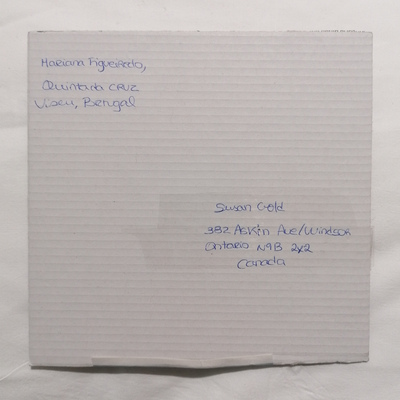 Mariana Figueiredo,
Quinta da CRUZ
Viseu, Bengal
Susan Gold
382 Askin Ave/Windsor
Ontario N9B 2x2
Canada